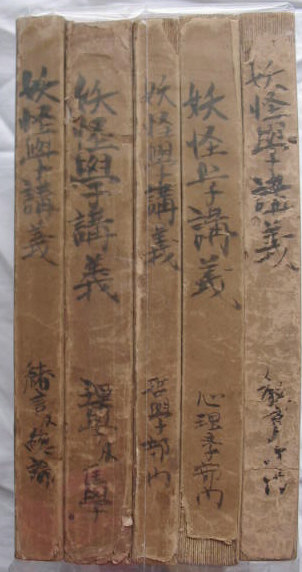 妖怪學講義
妖怪學講義
妖怪學講義
妖怪学講義
妖怪學講義
緒言及總論
理學及医學
哲學部門
心理学部門